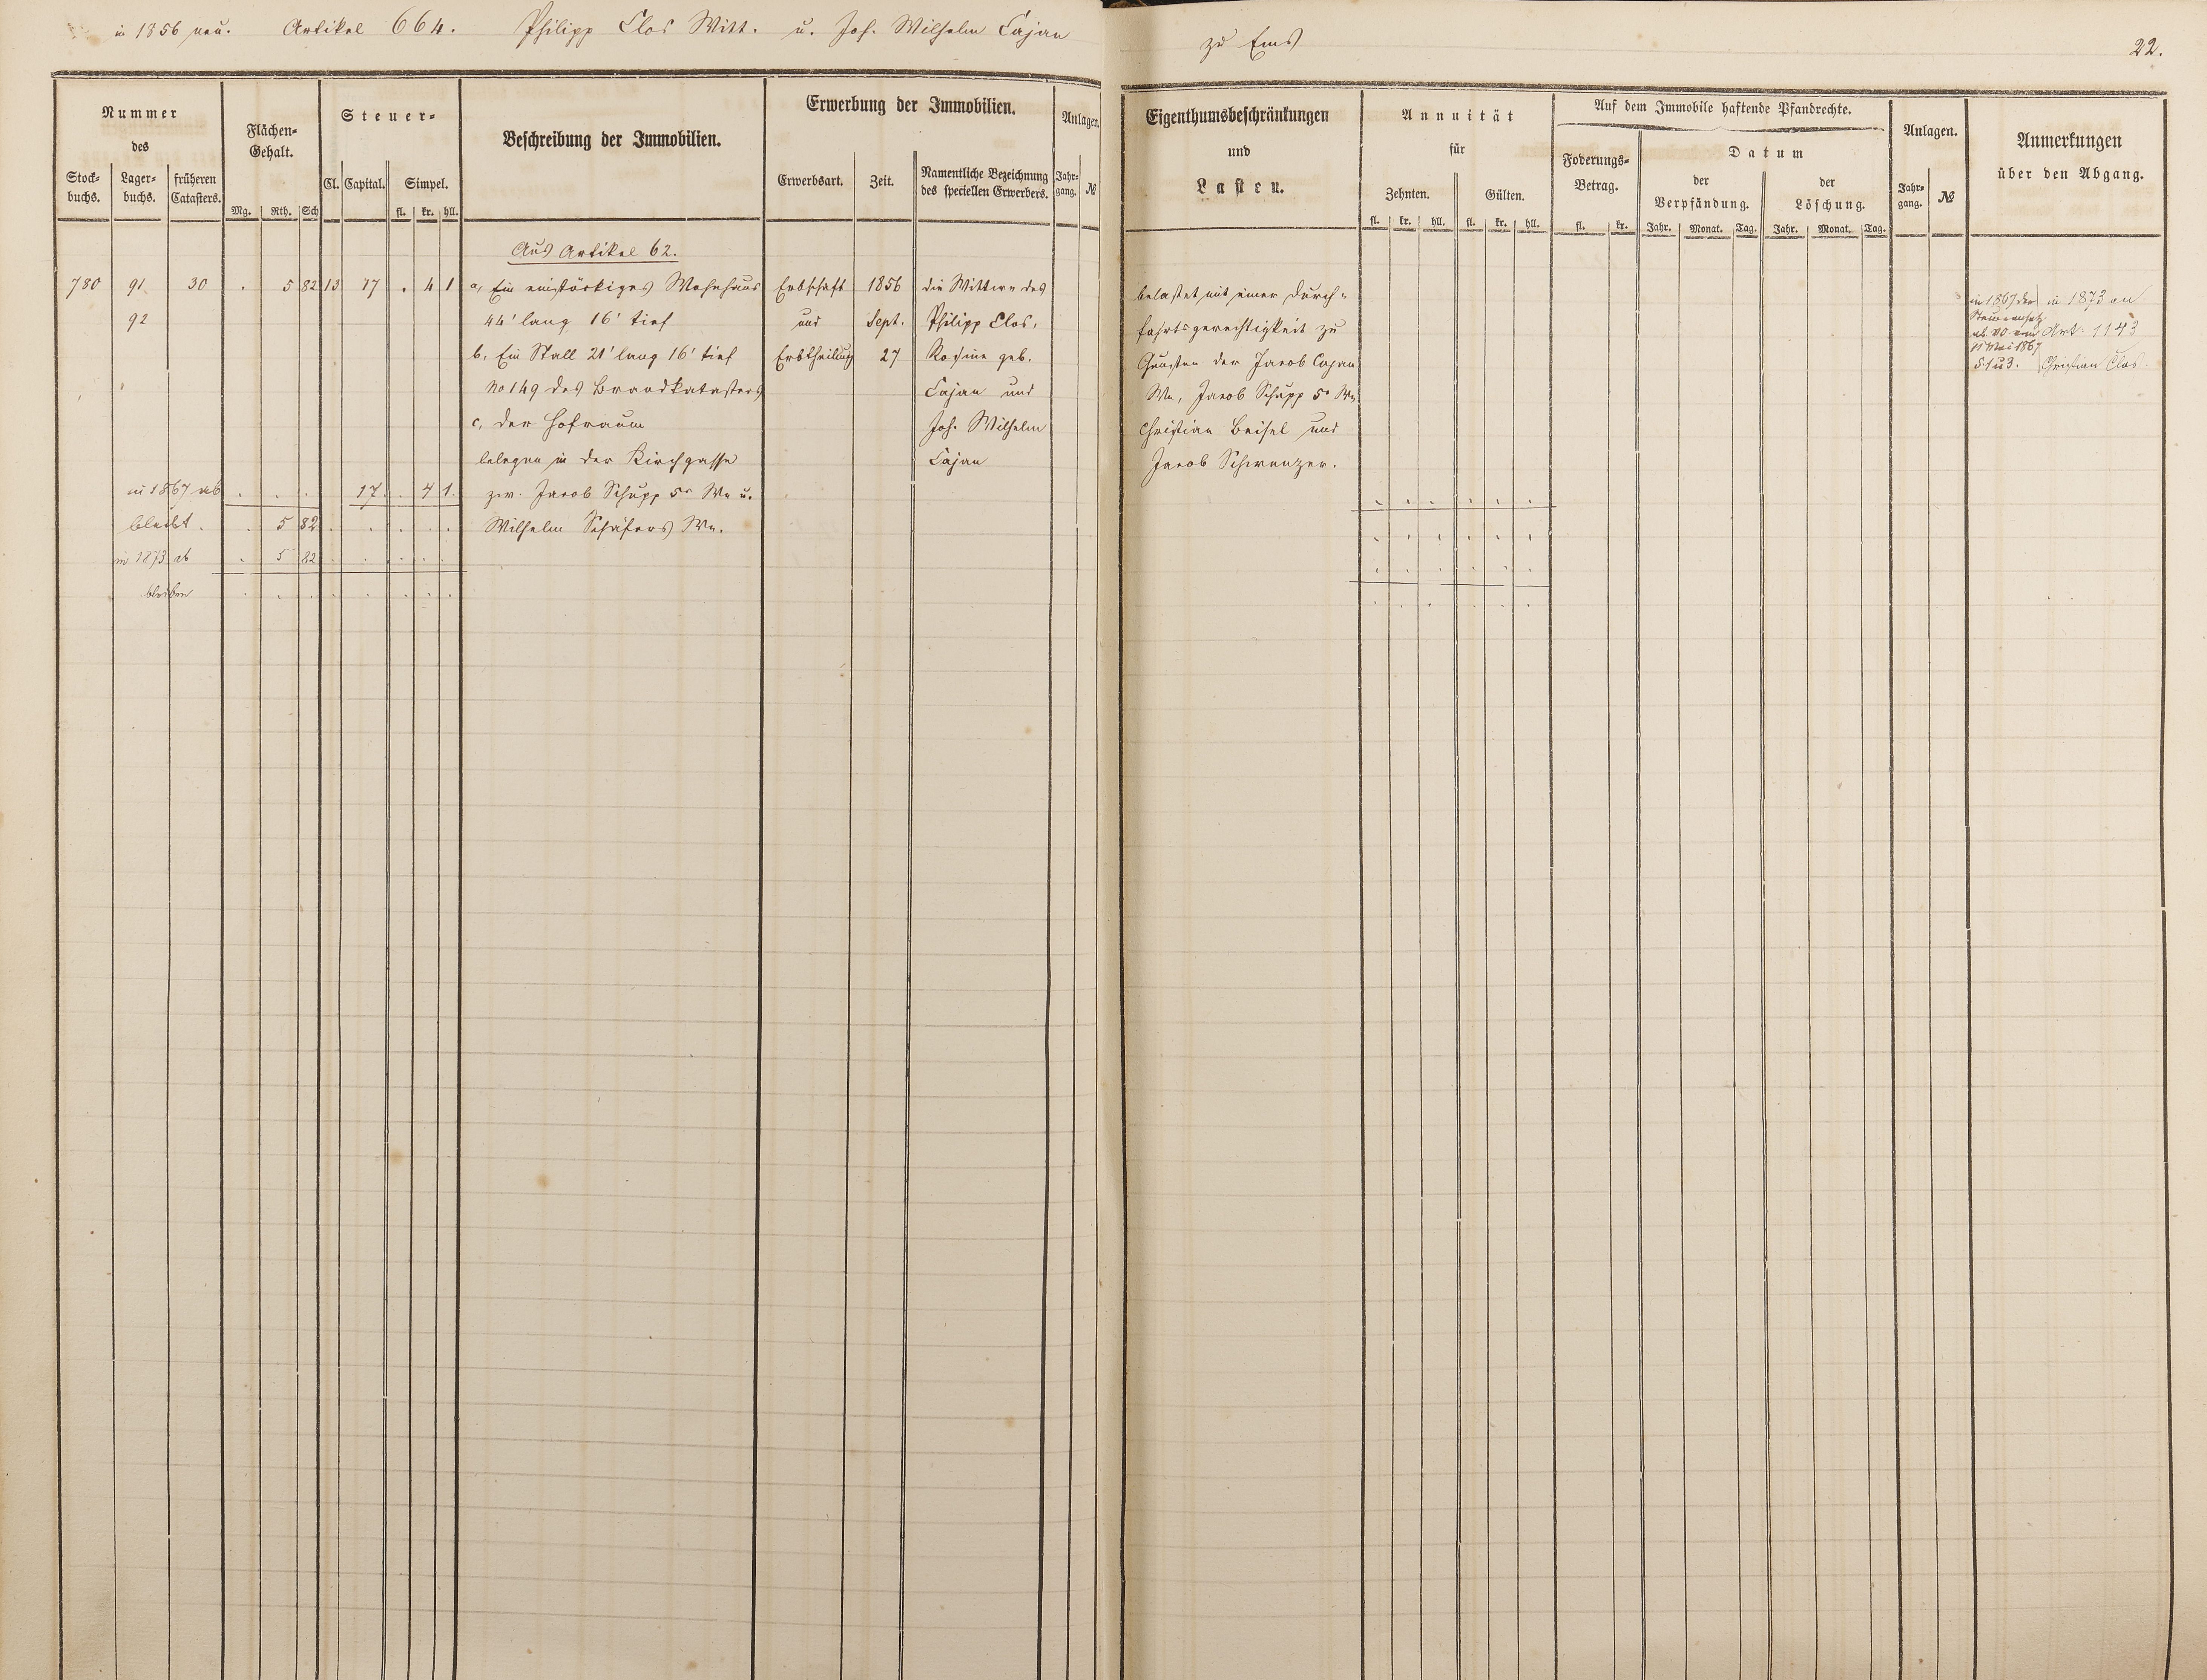 in 1856 neu. Artikel 664. Philipp Clos Witt. u. Joh. Wilhelm Cajan
zu Ems
22.
Nummer
des
Stock-
buchs.
Lager-
buchs.
früheren
Catasters.
Flächen-
Gehalt.
Mg. Rth. Sch
Steuer-
Cl. Capital. Simpel.
fl. kr. hll.
Beschreibung der Immobilien.
Erwerbung der Immobilien.
Erwerbsart. Zeit.
Namentliche Bezeichnung
des speciellen Erwerbers.
Anlagen.
Jahr-
gang. №
Eigenthumsbeschränkungen
und
Lasten.
Annuität
für
Zehnten. Gülten.
fl. kr. hll. fl. kr. hll.
Auf dem Immobile haftende Pfandrechte.
Foderungs-
Betrag.
fl. kr.
Datum
der
Verpfändung.
der
Löschung.
Jahr. Monat. Tag. Jahr. Monat. Tag.
Anlagen.
Jahr-
gang. №
Anmerkungen
über den Abgang.
Aus Artikel 62.
780 91 30 . 5 82 13 17 . 4 1 a, Ein einstöckiges Wohnhaus Erbschaft 1856 die Wittwe des
92 44' lang 16' tief und Sept. Philipp Clos,
b, Ein Stall 21' lang 16' tief Erbtheilung 27 Rosine geb.
No 149 des Brandkatasters Cajan und
c, der Hofraum Joh. Wilhelm
belegen in der Kirchgasse Cajan
in 1867 ab . . . 17 . 4 1. zw. Jacob Schupp 5r We u.
bleibt . . 5 82 . . . . . Wilhelm Schäfers We.
in 1873 ab . 5 82 . . . . .
bleiben . . . . . . . .
belastet mit einer Durch-
fahrtsgerechtigkeit zu
Gunsten der Jacob Cajan
We, Jacob Schupp 5r We
Christian Beisel und
Jacob Schwenzer.
in 1867 der
Steueransatz
ab VO vom
11 Mai 1867
§ 1 u 3.
in 1873 an
Art: 1143
Christian Clos.